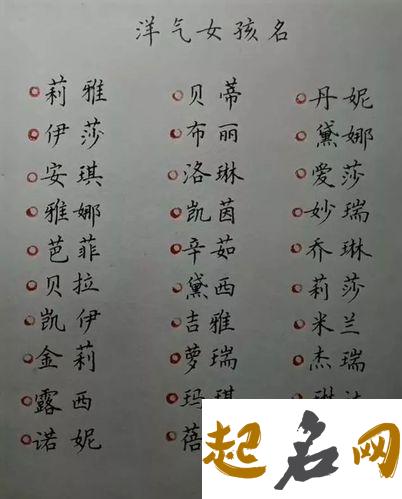 洋气女孩名
莉雅 贝蒂 丹妮
伊莎 布丽 黛娜
安琪 洛琳 爱莎
雅娜 凯茵 妙瑞
芭菲 辛茹 乔琳
贝拉 黛西 莉莎
凯伊 吉雅 米兰
金莉 萝瑞 杰瑞
露西 玛琪
诺妮 蓓
起名网